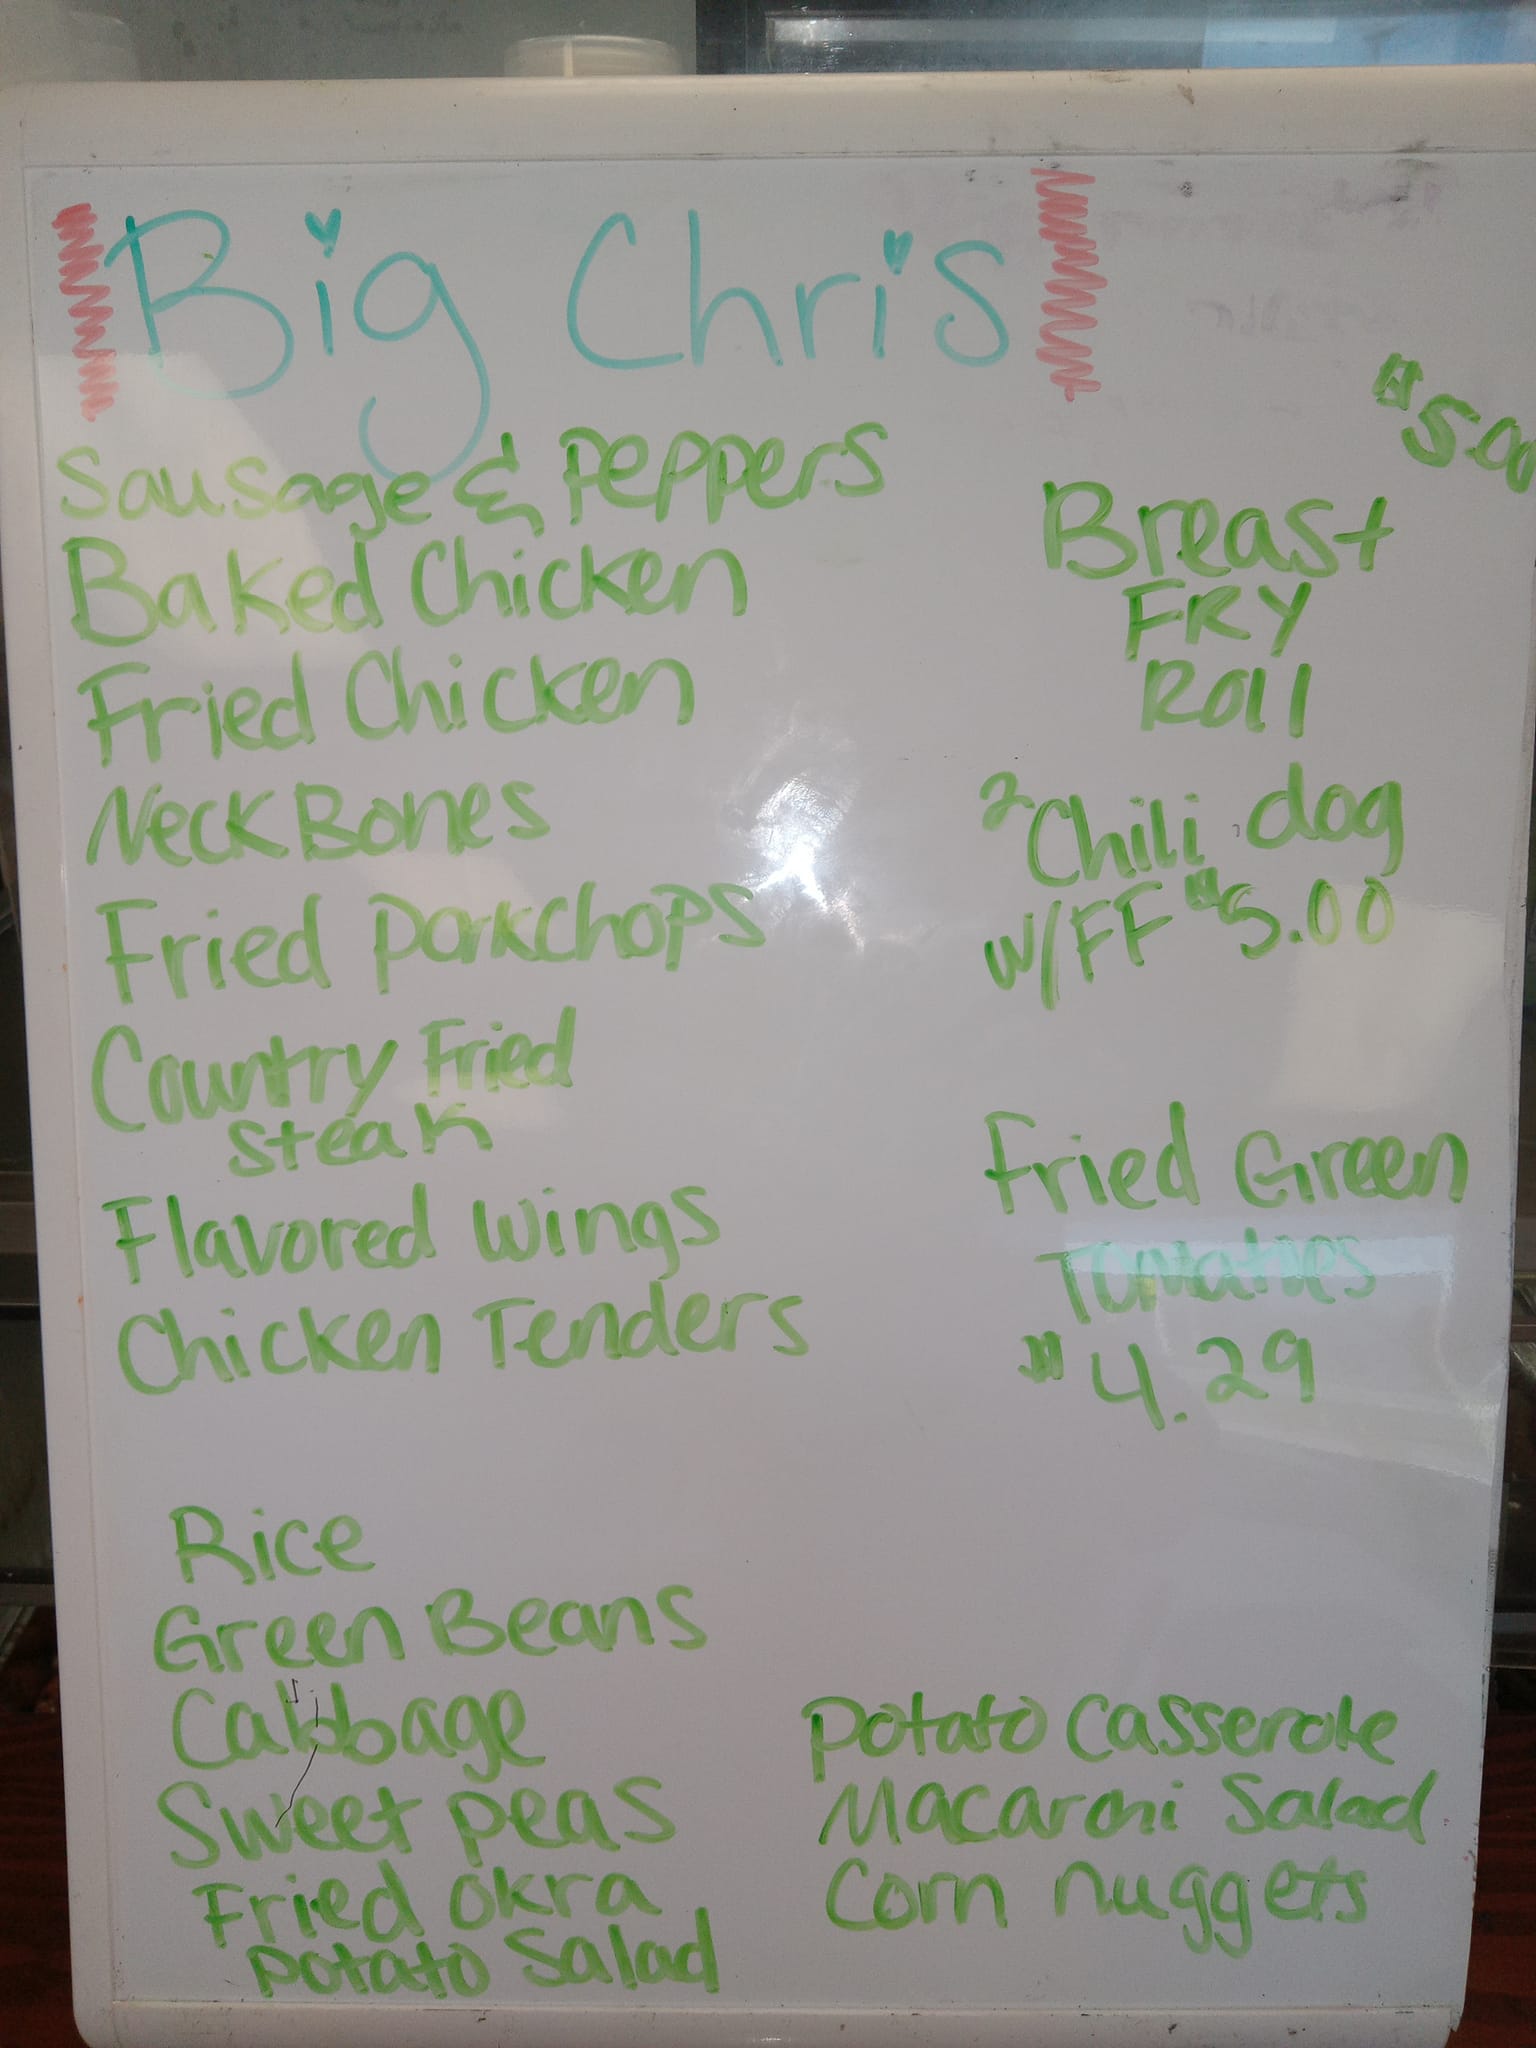 Big Chris
Sausage & Peppers
Baked Chicken
Fried Chicken
Neck Bones
Fried Porkchops
Country Fried
Steak
Flavored Wings
Chicken Tenders
$5.00
Breast
FRY
Roll
2 Chili dog
w/FF $5.00
Fried Green
Tomatoes
$4.29
Rice
Green Beans
Cabbage
Sweet peas
Fried okra
potato Salad
potato Casserole
Macaroni Salad
Corn nuggets